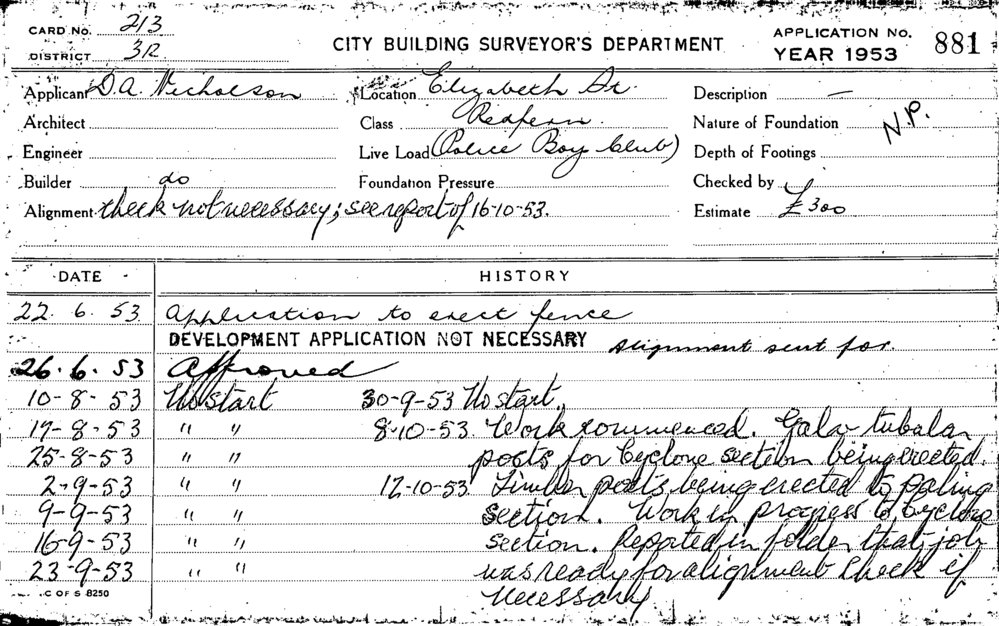 CARD No. 213
DISTRICT 3R
CITY BUILDING SURVEYOR'S DEPARTMENT
APPLICATION No. 881
YEAR 1953
Applicant D.A. Nicholson Location Elizabeth St. Description —
Architect Class Redfern. Nature of Foundation N.P.
Engineer Live Load (Police Boys Club) Depth of Footings
Builder do Foundation Pressure Checked by
Alignment check not necessary; see report of 16-10-53. Estimate £300
DATE HISTORY
22. 6. 53 Application to erect fence
DEVELOPMENT APPLICATION NOT NECESSARY Alignment sent for
26. 6. 53 Approved
10-8-53 No start 30-9-53 No start.
17-8-53 " " 8-10-53. Work commenced. Galv tubular
25-8-53 " " posts for Cyclone section being erected.
2-9-53 " " 12-10-53 Timber posts being erected to paling
9-9-53 " " section. Work in progress to Cyclone
16-9-53 " " section. Reported in folder that job
23-9-53 " " was ready for alignment check if
C OF S 8250 necessary